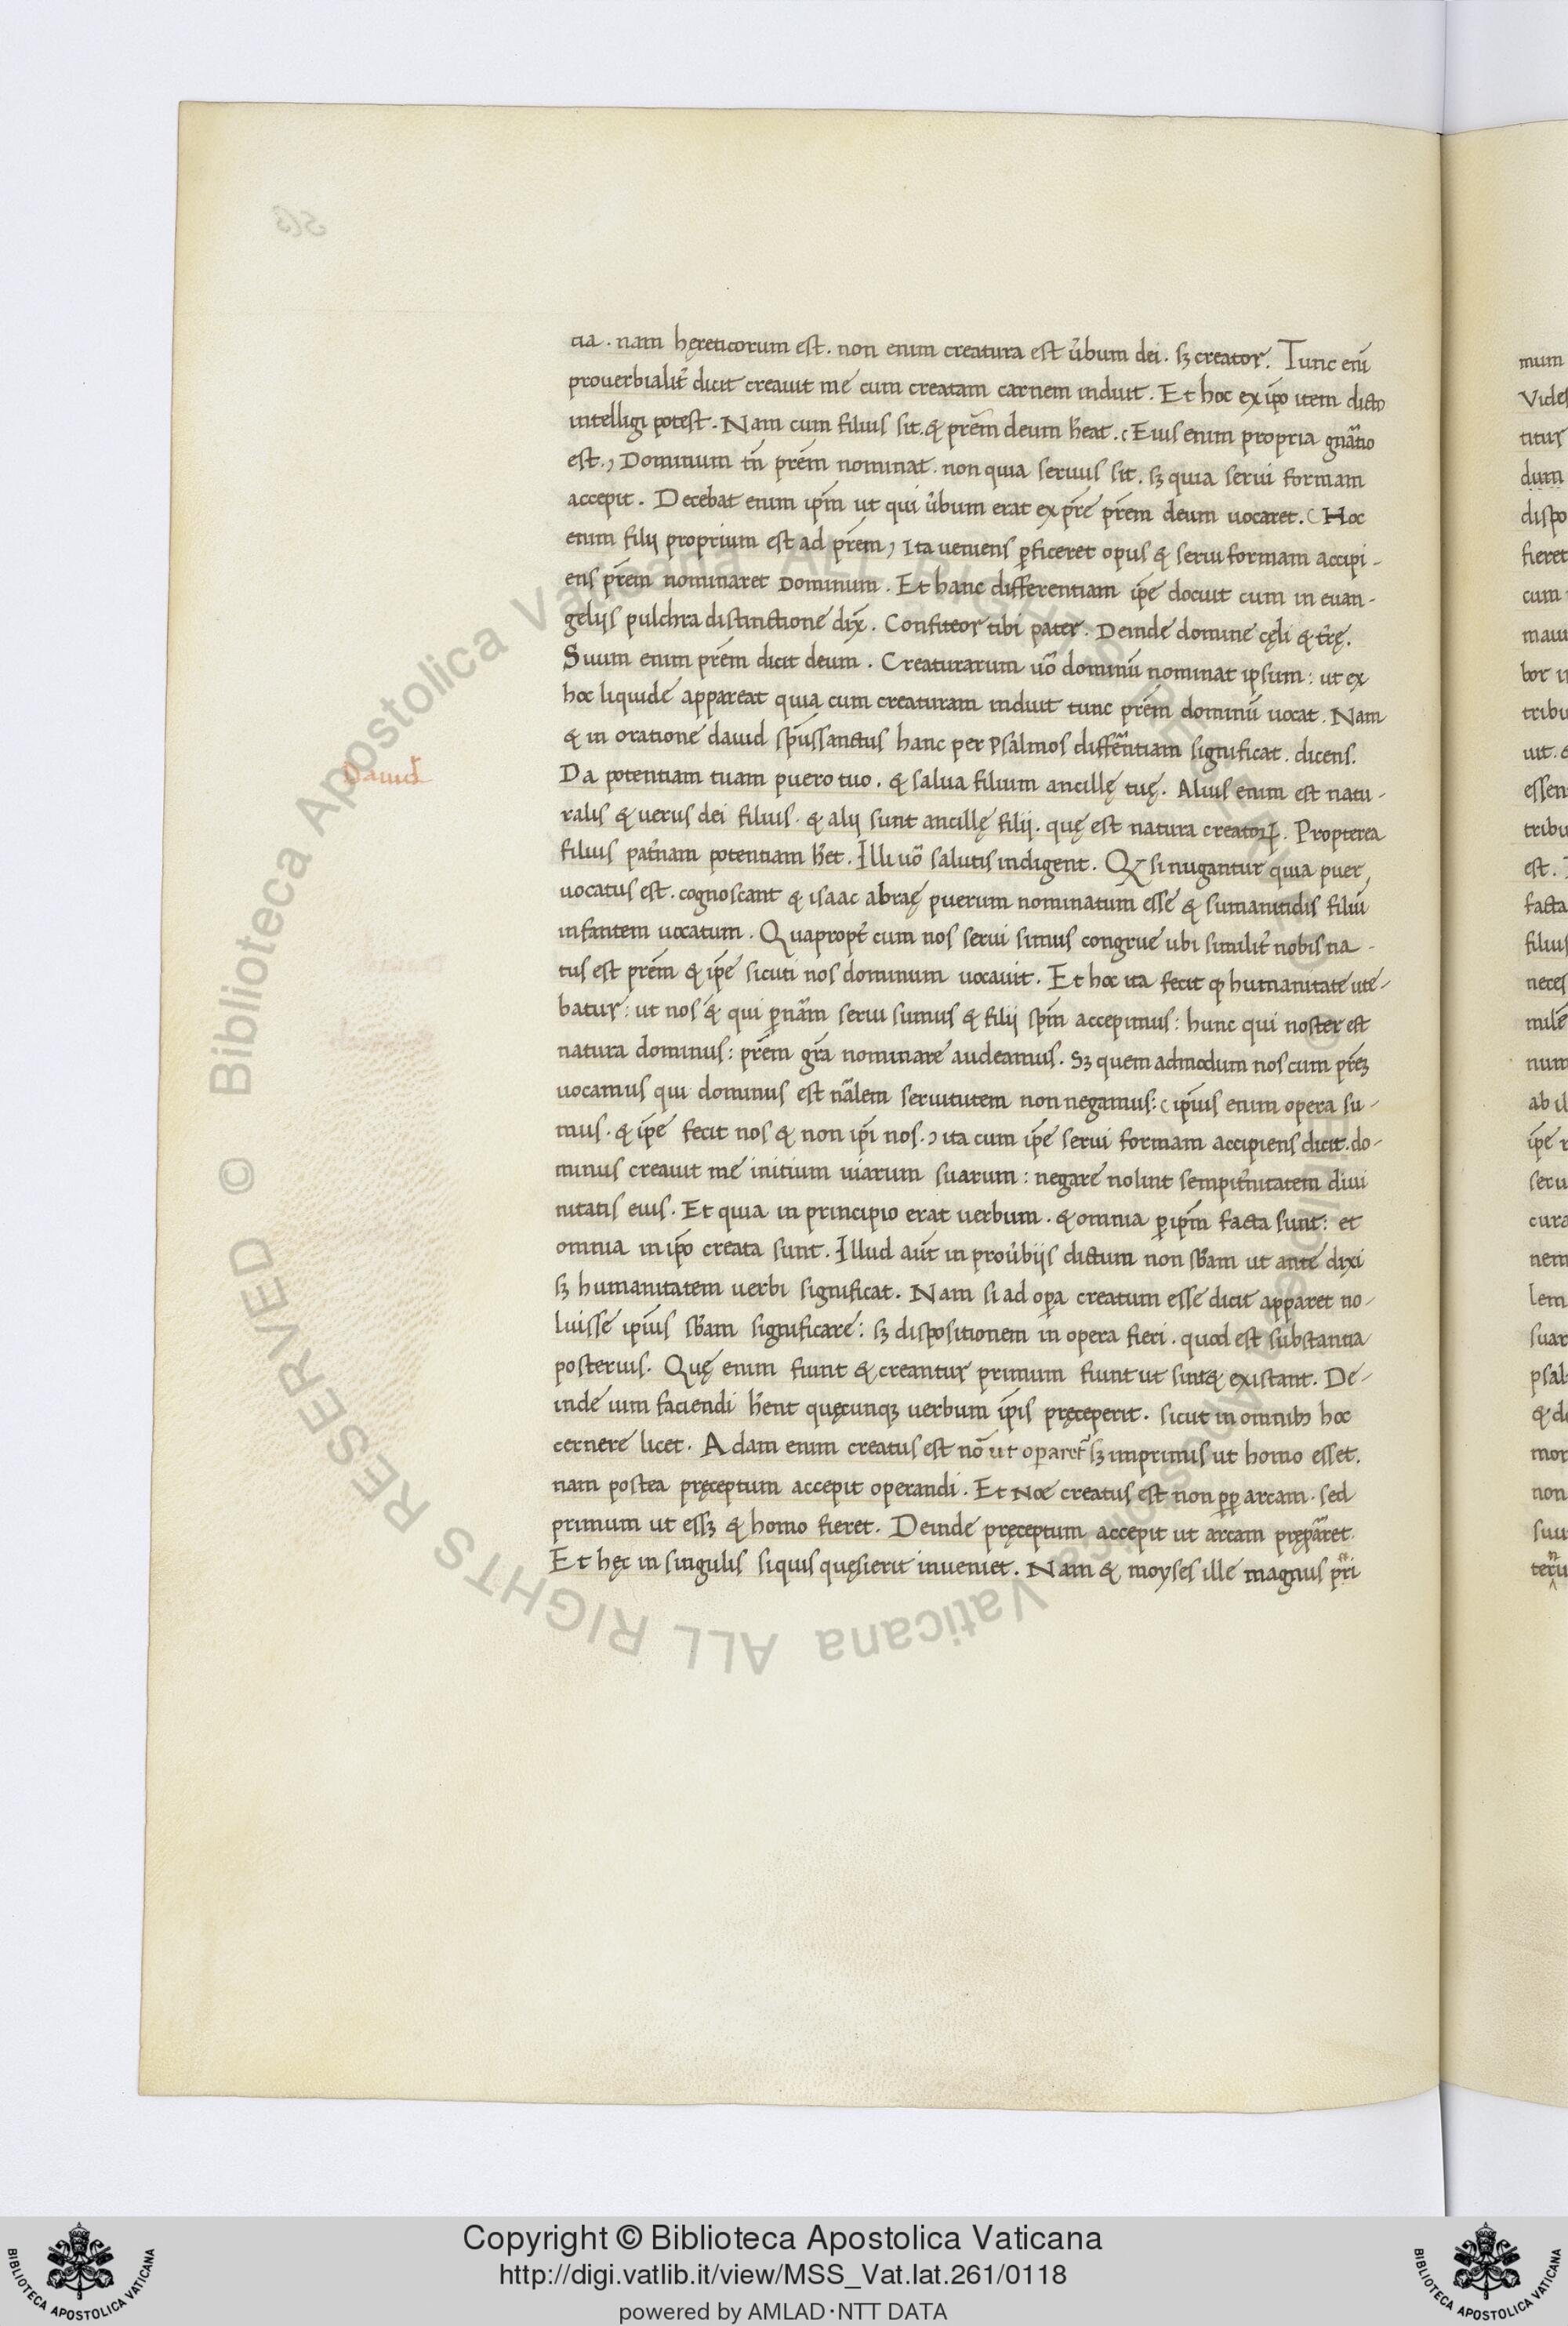 cia . nam hęreticorum est . non enim creatura est ũbum dei . sꝫ creator . Tunc eni᷉
prouerbialit᷉ dicit creauit me cum creatam carnem induit . Et hoc ex ip̃o item dicto
intelligi potest . Nam cum filius sit . & prẽm deum h̃eat . (Eius enim propria gñatio
est . ) Dominum tñ prẽm nominat . non quia seruus sit . sꝫ quia serui formam
accepit . Decebat enim ip̃m ut qui ũbum erat ex prẽ prẽm deum uocaret . (Hoc
enim filij proprium est ad prẽm ) Ita ueniens ꝑficeret opus & serui formam accipi -
ens prẽm nominaret Dominum . Et hanc differentiam ip̃e docuit cum in euan -
gelijs pulchra distinctione dix̃ . Confiteor tibi pater . Deinde domine cęli & t̃rę .
Suum enim prẽm dicit deum . Creaturarum uõ dominũ nominat ipsum : ut ex
hoc liquide appareat quia cum creaturam induit tunc prẽm dominũ uocat . Nam
& in oratione dauid sp̃ussanctus hanc per psalmos diffẽntiam significat . dicens .
Da potentiam tuam puero tuo . & salua filium ancillę tuę . Alius enim est natu -
ralis & uerus dei filius . & alij sunt ancillę filij . quę est natura creatoꝝ . Propterea
filius pat̃nam potentiam h̃et . Illi uõ salutis indigent . Qꝫ si nugantur quia puer
uocatus est . cognoscant & isaac abraę puerum nominatum esse & sumanitidis filiũ
infantem uocatum . Quapropt̃ cum nos serui simus congrue ubi similit̃ nobis na -
tus est prẽm & ip̃e sicuti nos dominum uocauit . Et hoc ita fecit ꝙ humanitate ute -
batur : ut nos & qui ꝑ nãm serui sumus & filij sp̃m accepimus : hunc qui noster est
natura dominus : prẽm grã nominare audeamus . Sꝫ quem admodum nos cum prẽꝫ
uocamus qui dominus est nãlem seruitutem non negamus : (ip̃ius enim opera su -
mus . & ip̃e fecit nos & non ip̃i nos . ) ita cum ip̃e serui formam accipiens dicit . do -
minus creauit me initium uiarum suarum : negare nolint sempit̃nitatem diui
nitatis eius . Et quia in principio erat uerbum . & omnia ꝑ ip̃m facta sunt : et
omnia in ip̃o creata sunt . Illud aũt in proũbijs dictum non sb̃am ut ante dixi
sꝫ humanitatem uerbi significat . Nam si ad oꝑa creatum esse dicit apparet no -
luisse ip̃ius sb̃am significare : sꝫ dispositionem in opera fieri . quod est substantia
posterius . Quę enim fiunt & creantur primum fiunt ut sint & existant . De -
inde uim faciendi h̃ent quęcunqꝫ uerbum ip̃is pręceperit . sicut in omnibꝫ hoc
cernere licet . Adam enim creatus est nõ ut oꝑaret᷉ sꝫ imprimis ut homo esset .
nam postea pręceptum accepit operandi . Et Noe creatus est non ꝓp arcam . sed
primum ut essꝫ & homo fieret . Deinde pręceptum accepit ut arcam prępãret .
Et hęc in singulis siquis quęsierit inueniet . Nam & moyses ille magnus pri
Dauid
mum
titur
dum
dispo
fieret
cum
tribu
uit . &
essen
tribu
est .
facta
filius
neces
num
ab il
ip̃e
cura
nem
lem
suar
psal
& d
mor
non
suu
© Biblioteca Apostolica Vaticana ALL RIGHTS RESERVED
Copyright © Biblioteca Apostolica Vaticana
http://digi.vatlib.it/view/MSS_Vat.lat.261/0118
powered by AMLAD·NTT DATA
BIBLIOTECA APOSTOLICA VATICANA
BIBLIOTECA APOSTOLICA VATICANA